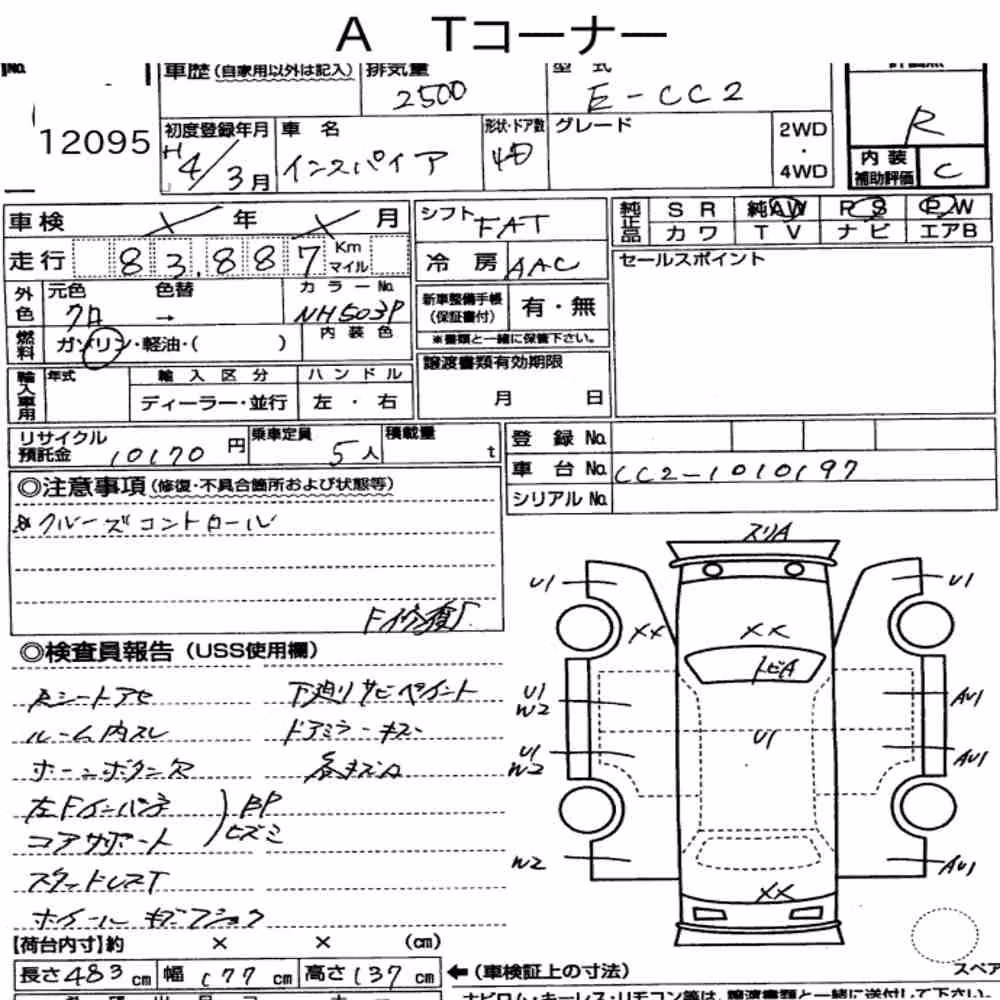 A Tコーナー
No.
12095
車歴 (自家用以外は記入)
排気量
2500
型式
E-CC2
R
初度登録年月
H4/3月
車名
インスパイア
形状・ドア数
4D
グレード
2WD
・
4WD
内装
補助評価
C
車検 × 年 × 月
走行 83,887 Km
マイル
シフト FAT
冷房 AAC
純正品
SR 純AW PS PW
カワ TV ナビ エアB
外色
元色 色替 カラーNo.
クロ → NH503P
新車整備手帳
(保証書付)
有・無
※書類と一緒に保管下さい。
セールスポイント
燃料
ガソリン・軽油・( )
内装色
譲渡書類有効期限
月 日
輸入車用
年式
輸入区分
ハンドル
ディーラー・並行
左・右
リサイクル
預託金
10170円
乗車定員
5人
積載量
t
登録No.
車台No. CC2-1010197
シリアルNo.
◎注意事項 (修復・不具合箇所および状態等)
クルーズコントロール
F修復
◎検査員報告 (USS使用欄)
下廻りサビペイント
ルーム内スレ
ホーンボタン穴
コアサポート
BP
スタッドレスT
スリA
U1
U1
XX
XX
トビA
U1
W2
AU1
U1
U1
W2
AU1
W2
AU1
XX
【荷台内寸】約 × × (cm)
長さ483cm 幅177cm 高さ137cm
←(車検証上の寸法)
スペア
ナビロム・キーレス・リモコン等は、譲渡書類と一緒に送付して下さい。